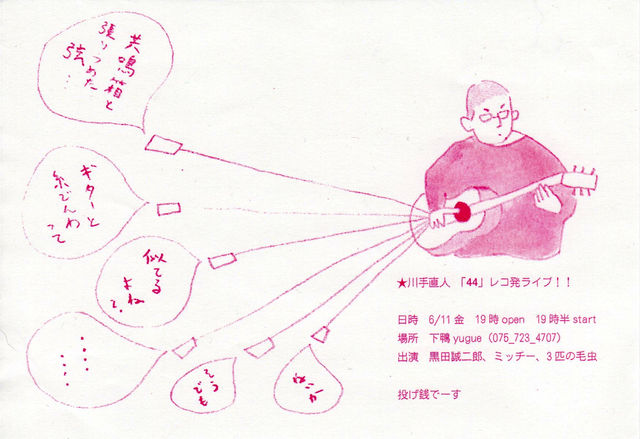 共鳴箱と
張りつめた
弦…
ギターと
糸でんわ
って
似てる
よね
て、
・・・・
・・・・
そう
でも
ねーか
★川手直人 「44」レコ発ライブ！！
日時 6/11金 19時open 19時半start
場所 下鴨yugue（075_723_4707）
出演 黒田誠二郎、ミッチー、3匹の毛虫
投げ銭でーす